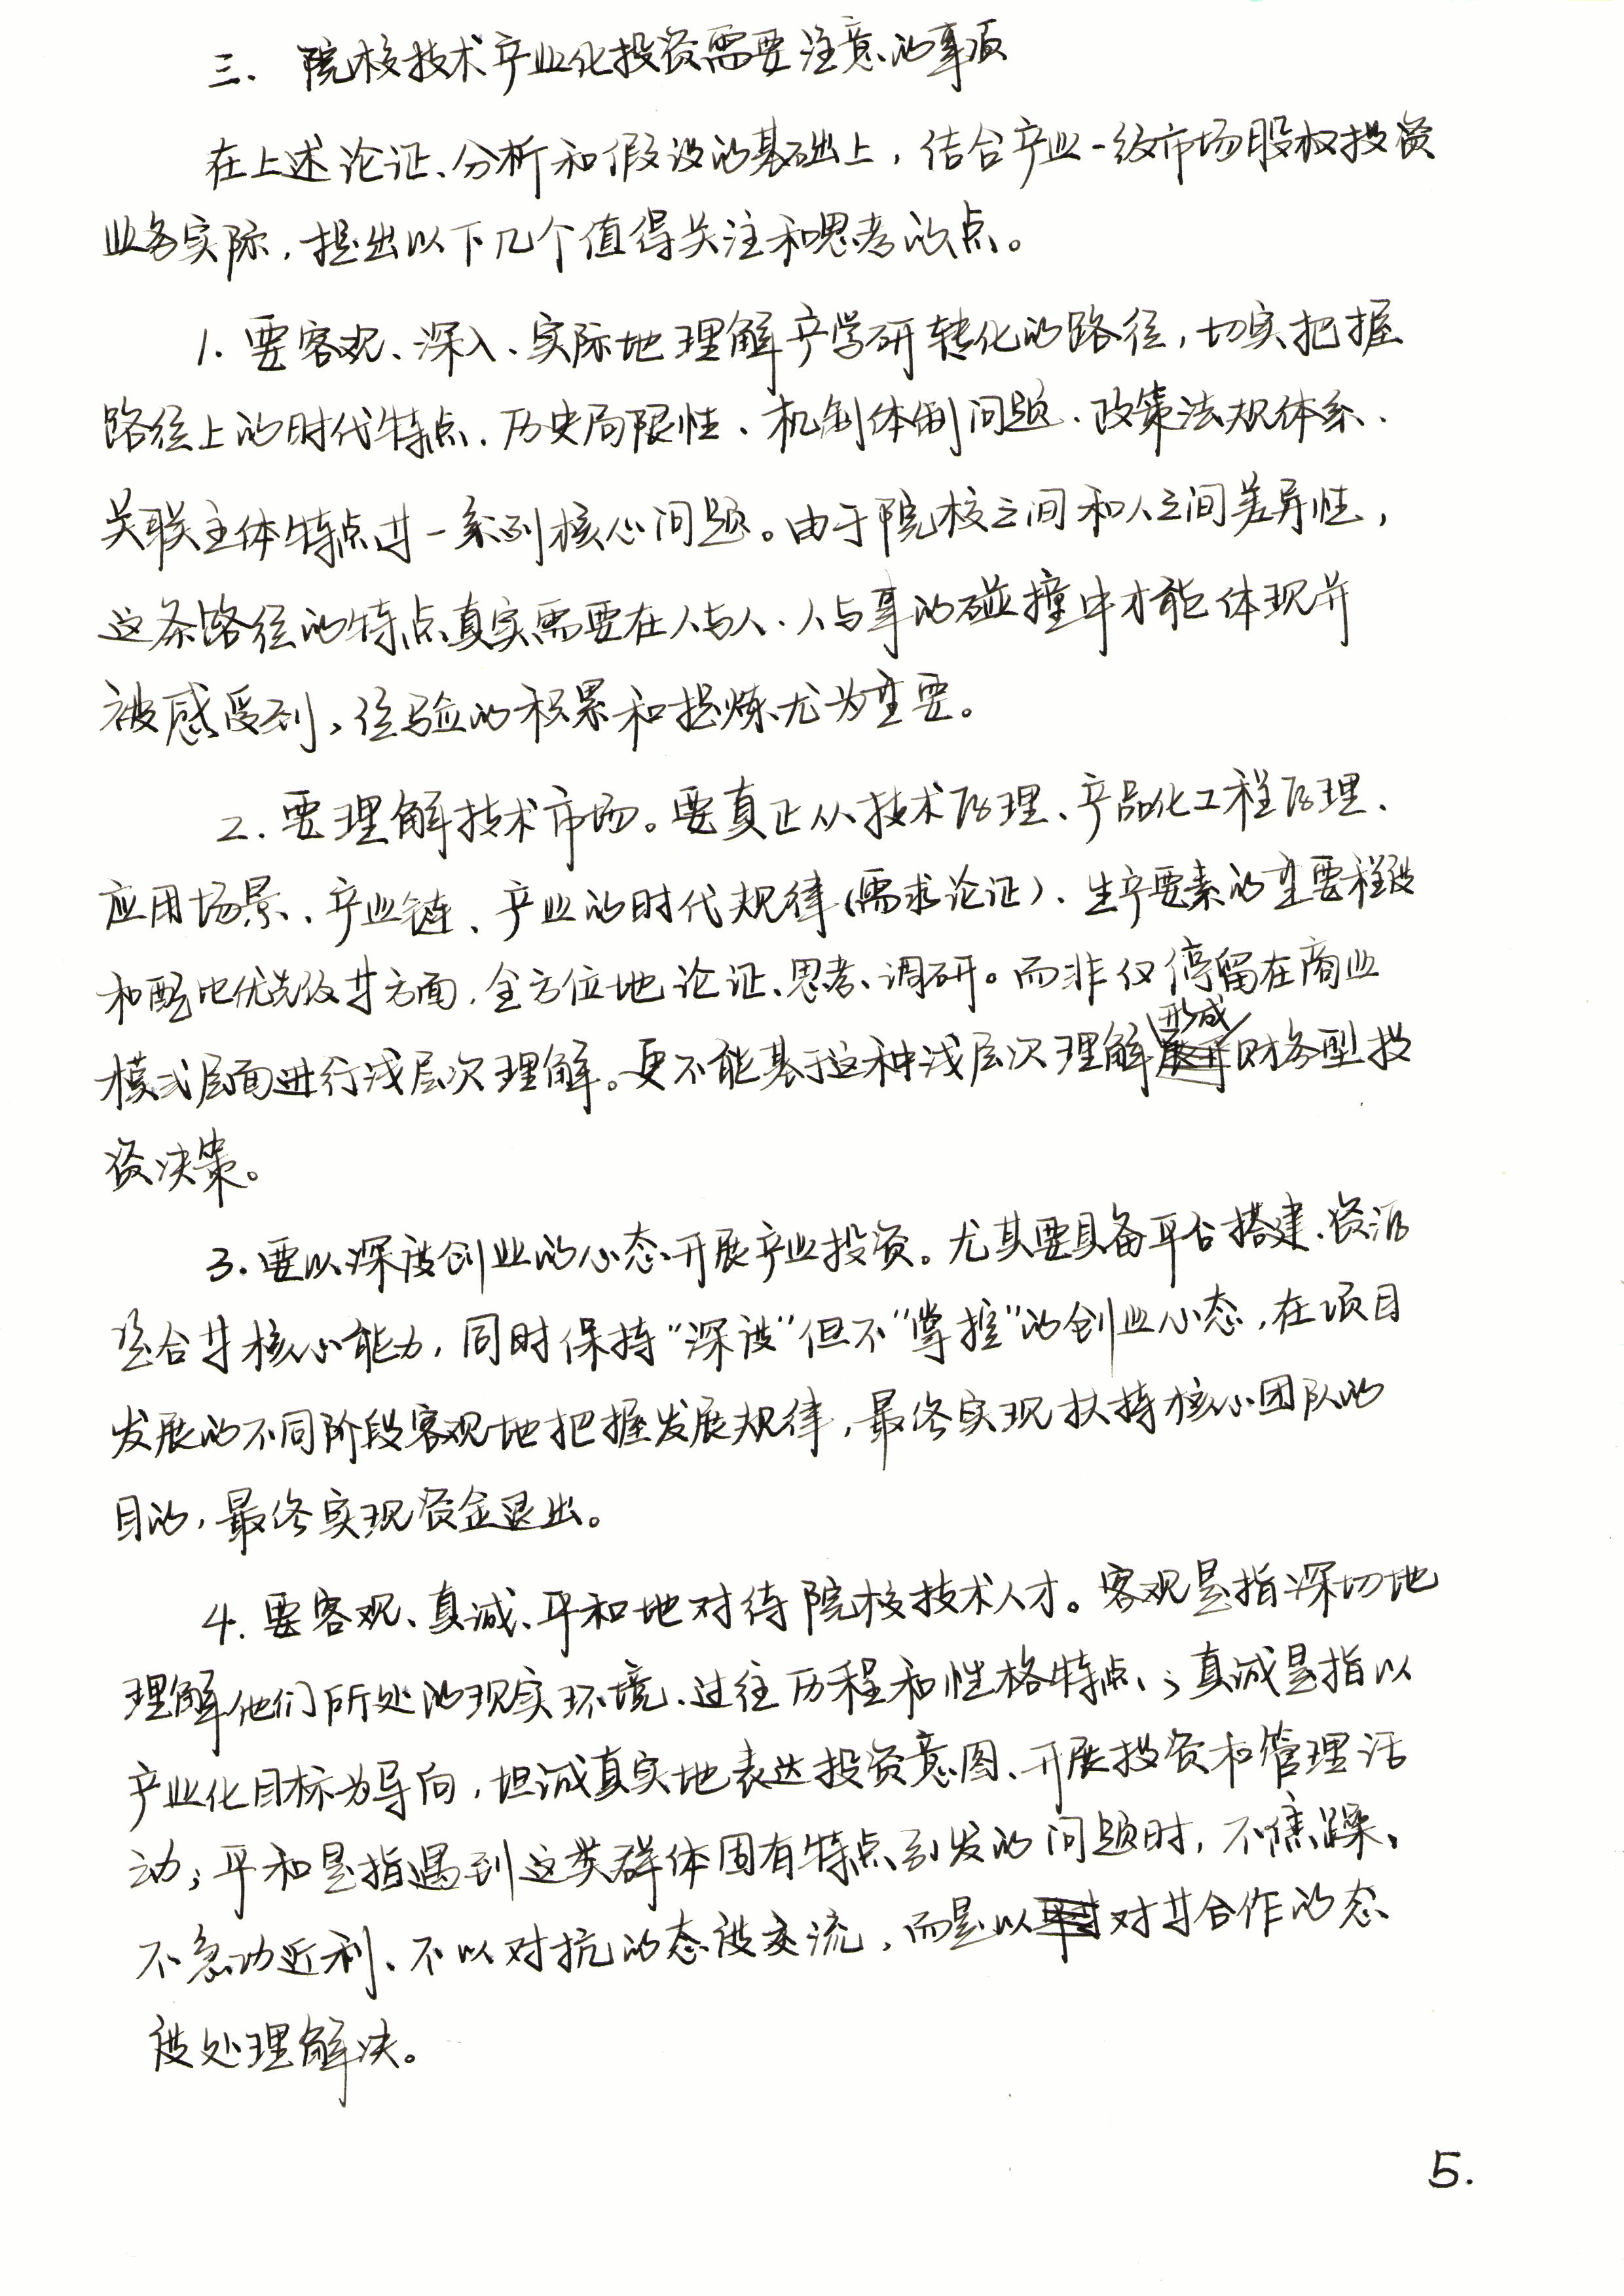 三、院校技术产业化投资需要注意的事项
在上述论证、分析和假设的基础上，结合产业一级市场股权投资
业务实际，提出以下几个值得关注和思考的点。
1. 要客观、深入、实际地理解产学研转化的路径，切实把握
路径上的时代特点、历史局限性、机制体制问题、政策法规体系、
关联主体特点等一系列核心问题。由于院校之间和人之间差异性，
这条路径的特点真实需要在人与人、人与事的碰撞中才能体现并
被感受到，经验的积累和提炼尤为重要。
2. 要理解技术市场。要真正从技术原理、产品化工程原理、
应用场景、产业链、产业的时代规律（需求论证）、生产要素的重要程度
和配比优先级等方面，全方位地论证、思考、调研。而非仅停留在商业
模式层面进行浅层次理解。更不能基于这种浅层次理解形成财务型投
资决策。
3. 要以深度创业的心态开展产业投资。尤其要具备平台搭建、资源
整合等核心能力，同时保持“深度”但不“掌控”的创业心态，在项目
发展的不同阶段客观地把握发展规律，最终实现扶持核心团队的
目的，最终实现资金退出。
4. 要客观、真诚、平和地对待院校技术人才。客观是指深切地
理解他们所处的现实环境、过往历程和性格特点；真诚是指以
产业化目标为导向，坦诚真实地表达投资意图、开展投资和管理活
动；平和是指遇到这类群体固有特点引发的问题时，不焦躁、
不急功近利、不以对抗的态度交流，而是以对等合作的态
度处理解决。
5.